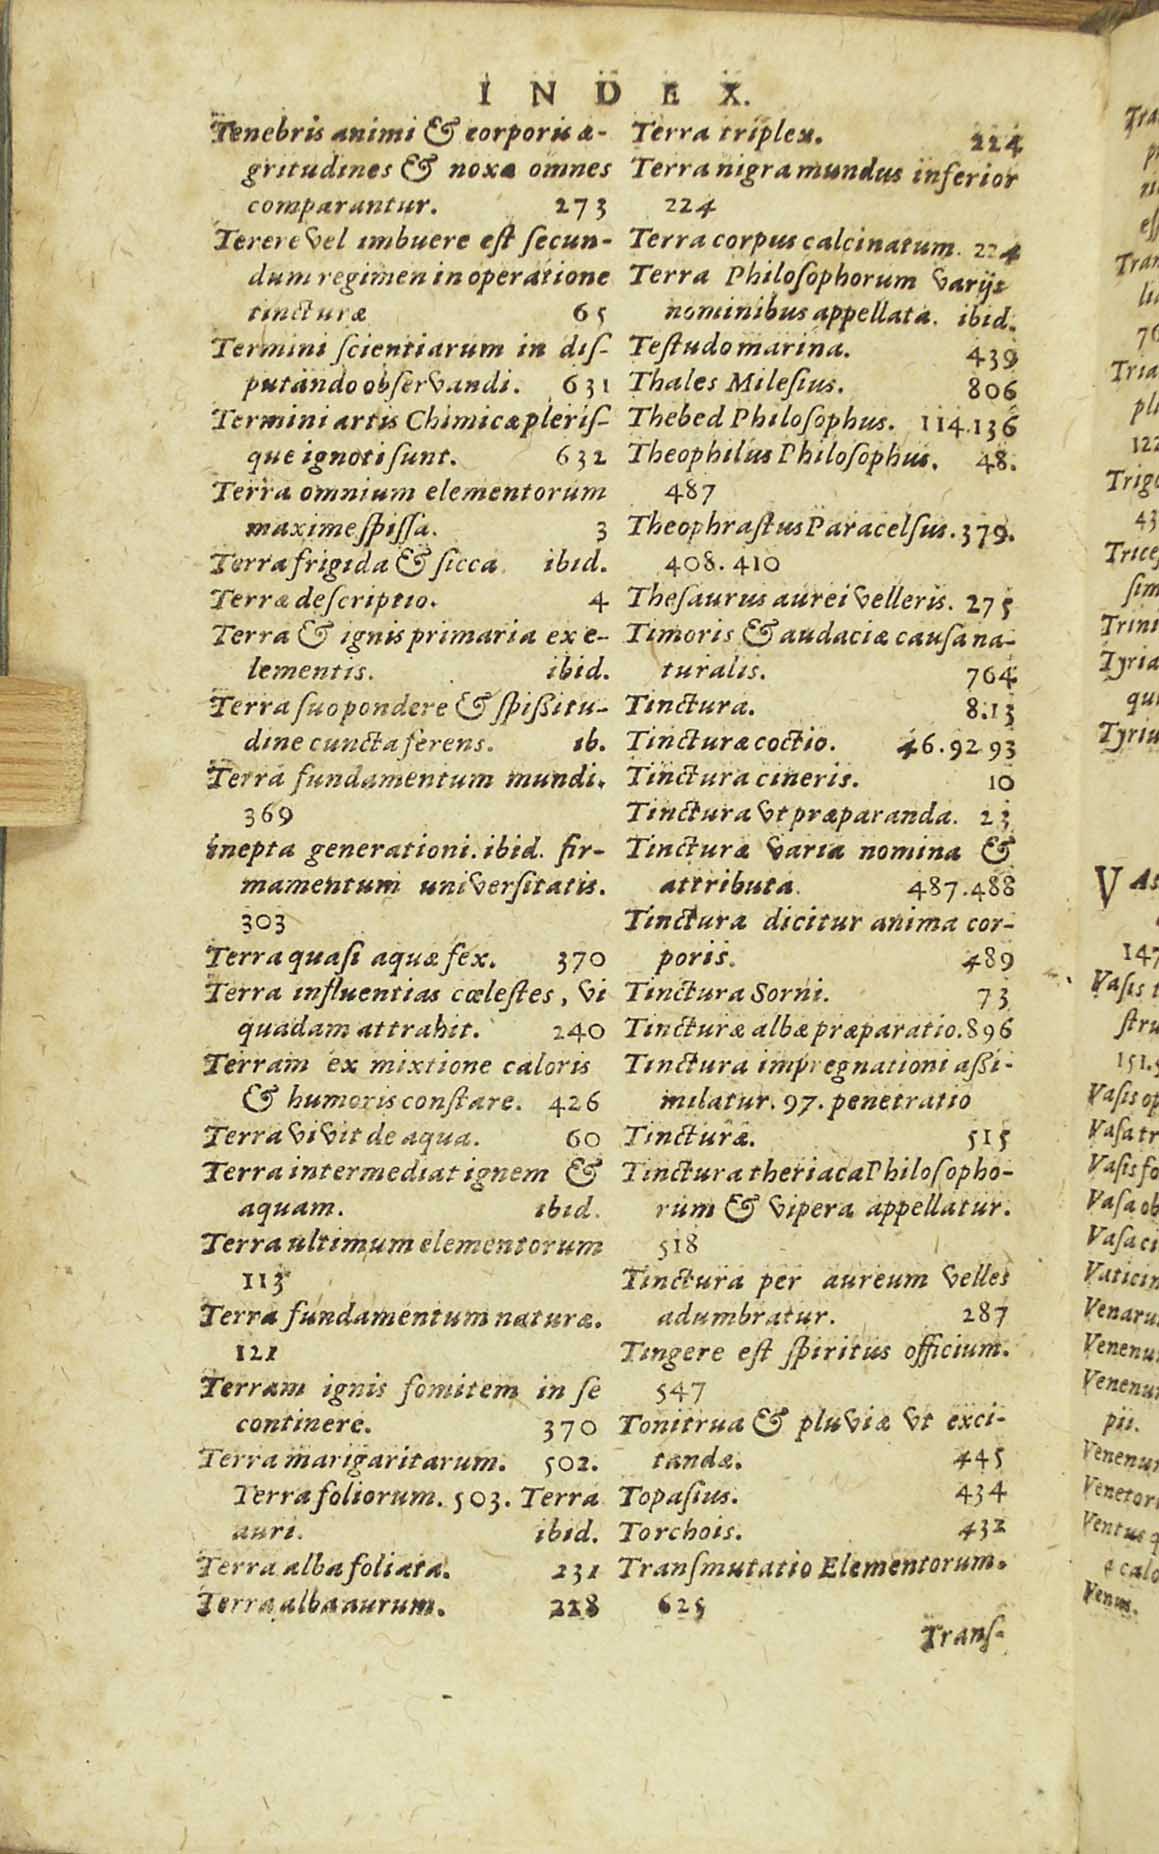 INDEX.
Tenebris animi & corporis æ-
gritudines & noxæ omnes
comparantur. 273
Terere vel imbuere eſt ſecun-
dum regimen in operatione
tincturæ 65
Termini ſcientiarum in diſ-
putando obſervandi. 631
Termini artis Chimicæ pleriſ-
que ignoti ſunt. 632
Terra omnium elementorum
maxime ſpiſſa. 3
Terra frigida & ſicca. ibid.
Terræ deſcriptio. 4
Terra & ignis primaria ex e-
lementis. ibid.
Terra ſuo pondere & ſpißitu-
dine cuncta ferens. ib.
Terra fundamentum mundi.
369
inepta generationi. ibid. fir-
mamentum univerſitatis.
303
Terra quaſi aquæ fex. 370
Terra influentias cœleſtes, vi
quadam attrahit. 240
Terram ex mixtione caloris
& humoris conſtare. 426
Terra vivit de aqua. 60
Terra intermediat ignem &
aquam. ibid.
Terra ultimum elementorum
113
Terra fundamentum naturæ.
121
Terram ignis fomitem in ſe
continere. 370
Terra marigaritarum. 502.
Terra foliorum. 503. Terra
auri. ibid.
Terra alba foliata. 231
Terra alba aurum. 228
Terra triplex. 224
Terra nigra mundus inferior
224
Terra corpus calcinatum. 224
Terra Philoſophorum varijs
nominibus appellata. ibid.
Teſtudo marina. 439
Thales Mileſius. 806
Thebed Philoſophus. 114.136
Theophilus Philoſophus. 48.
487
Theophraſtus Paracelſus. 379.
408. 410
Theſaurus aurei velleris. 275
Timoris & audaciæ cauſa na-
turalis. 764
Tinctura. 8.13
Tincturæ coctio. 46.92 93
Tinctura cineris. 10
Tinctura vt præparanda. 23
Tincturæ varia nomina &
attributa. 487.488
Tinctura dicitur anima cor-
poris. 489
Tinctura Sorni. 73
Tincturæ albæ præparatio. 896
Tinctura impregnationi aßi-
milatur. 97. penetratio
Tincturæ. 515
Tinctura theriaca Philoſopho-
rum & vipera appellatur.
518
Tinctura per aureum velles
adumbratur. 287
Tingere eſt ſpiritus officium.
547
Tonitrua & pluviæ vt exci-
tandæ. 445
Topaſius. 434
Torchois. 432
Tranſmutatio Elementorum.
625
Tranſ-